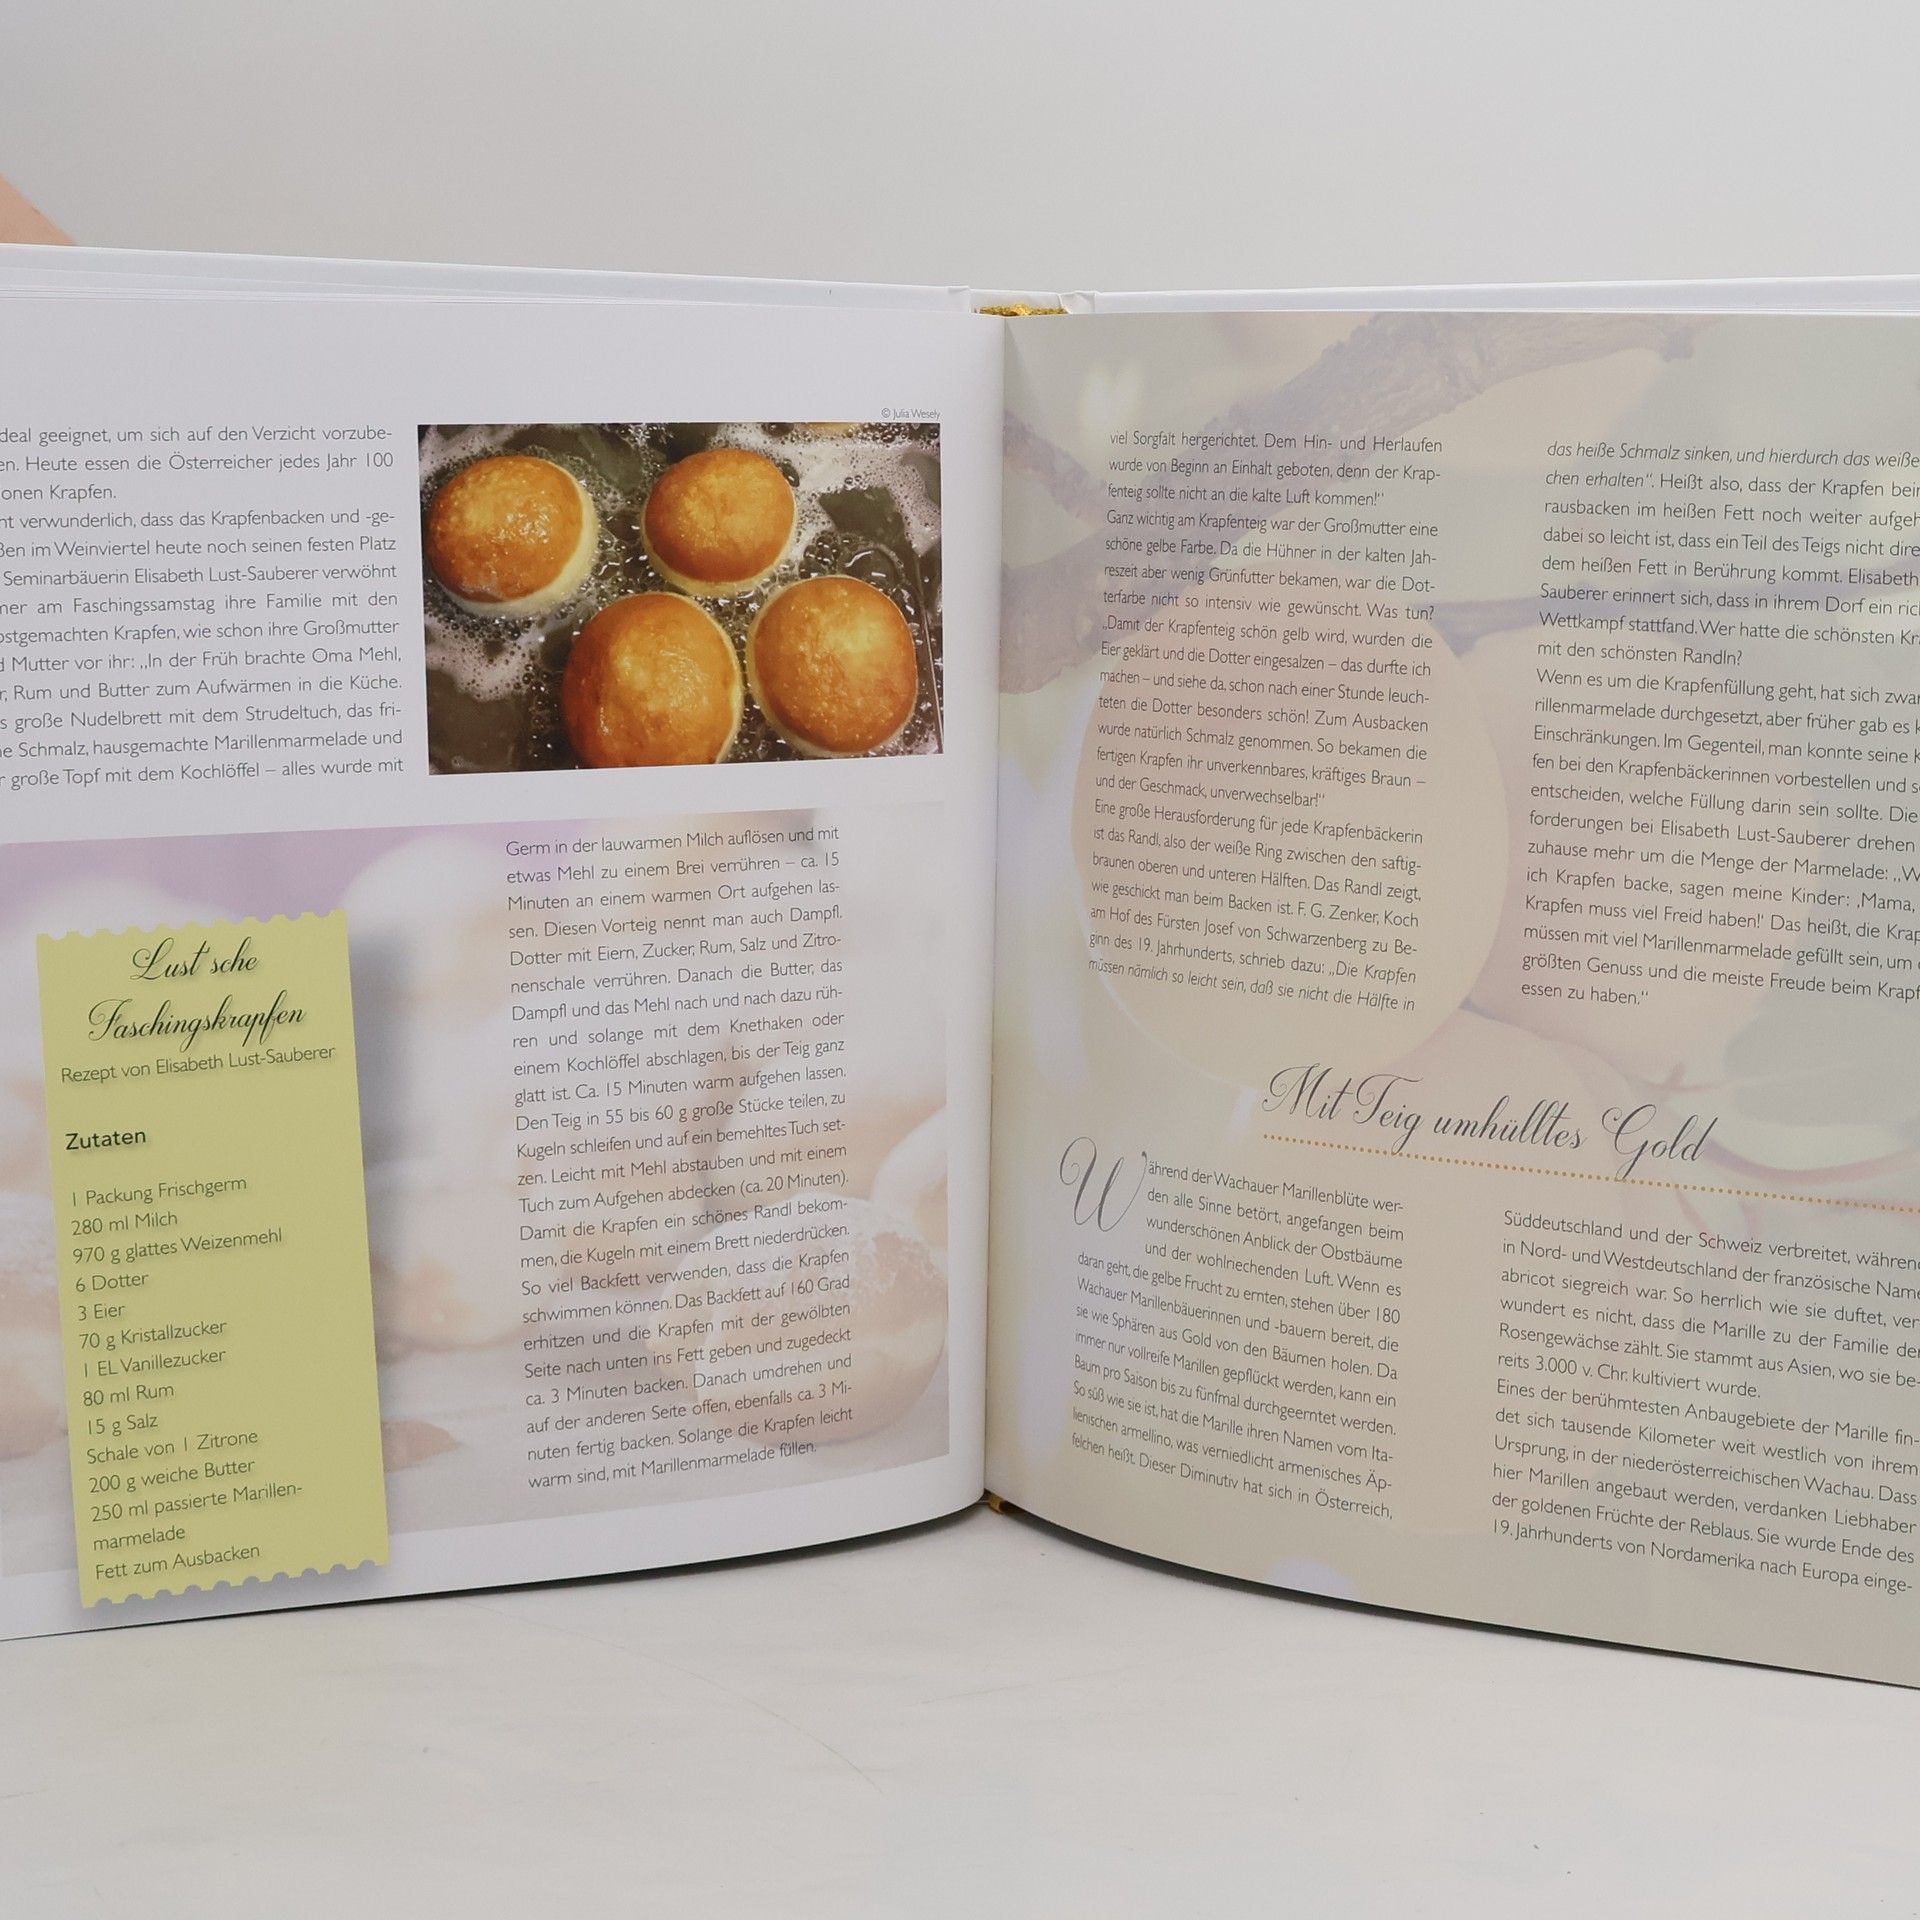 © Julia Wesely
deal geeignet, um sich auf den Verzicht vorzube-
en. Heute essen die Österreicher jedes Jahr 100
onen Krapfen.
ht verwunderlich, dass das Krapfenbacken und -ge-
ßen im Weinviertel heute noch seinen festen Platz
Seminarbäuerin Elisabeth Lust-Sauberer verwöhnt
mer am Faschingssamstag ihre Familie mit den
ostgemachten Krapfen, wie schon ihre Großmutter
d Mutter vor ihr: „In der Früh brachte Oma Mehl,
r, Rum und Butter zum Aufwärmen in die Küche.
s große Nudelbrett mit dem Strudeltuch, das fri-
he Schmalz, hausgemachte Marillenmarmelade und
r große Topf mit dem Kochlöffel – alles wurde mit
Lust'sche
Faschingskrapfen
Rezept von Elisabeth Lust-Sauberer
Zutaten
1 Packung Frischgerm
280 ml Milch
970 g glattes Weizenmehl
6 Dotter
3 Eier
70 g Kristallzucker
1 EL Vanillezucker
80 ml Rum
15 g Salz
Schale von 1 Zitrone
200 g weiche Butter
250 ml passierte Marillen-
marmelade
Fett zum Ausbacken
Germ in der lauwarmen Milch auflösen und mit
etwas Mehl zu einem Brei verrühren – ca. 15
Minuten an einem warmen Ort aufgehen las-
sen. Diesen Vorteig nennt man auch Dampfl.
Dotter mit Eiern, Zucker, Rum, Salz und Zitro-
nenschale verrühren. Danach die Butter, das
Dampfl und das Mehl nach und nach dazu rüh-
ren und solange mit dem Knethaken oder
einem Kochlöffel abschlagen, bis der Teig ganz
glatt ist. Ca. 15 Minuten warm aufgehen lassen.
Den Teig in 55 bis 60 g große Stücke teilen, zu
Kugeln schleifen und auf ein bemehltes Tuch set-
zen. Leicht mit Mehl abstauben und mit einem
Tuch zum Aufgehen abdecken (ca. 20 Minuten).
Damit die Krapfen ein schönes Randl bekom-
men, die Kugeln mit einem Brett niederdrücken.
So viel Backfett verwenden, dass die Krapfen
schwimmen können. Das Backfett auf 160 Grad
erhitzen und die Krapfen mit der gewölbten
Seite nach unten ins Fett geben und zugedeckt
ca. 3 Minuten backen. Danach umdrehen und
auf der anderen Seite offen, ebenfalls ca. 3 Mi-
nuten fertig backen. Solange die Krapfen leicht
warm sind, mit Marillenmarmelade füllen.
viel Sorgfalt hergerichtet. Dem Hin- und Herlaufen
wurde von Beginn an Einhalt geboten, denn der Krap-
fenteig sollte nicht an die kalte Luft kommen!“
Ganz wichtig am Krapfenteig war der Großmutter eine
schöne gelbe Farbe. Da die Hühner in der kalten Jah-
reszeit aber wenig Grünfutter bekamen, war die Dot-
terfarbe nicht so intensiv wie gewünscht. Was tun?
„Damit der Krapfenteig schön gelb wird, wurden die
Eier geklärt und die Dotter eingesalzen – das durfte ich
machen – und siehe da, schon nach einer Stunde leuch-
teten die Dotter besonders schön! Zum Ausbacken
wurde natürlich Schmalz genommen. So bekamen die
fertigen Krapfen ihr unverkennbares, kräftiges Braun –
und der Geschmack, unverwechselbar!“
Eine große Herausforderung für jede Krapfenbäckerin
ist das Randl, also der weiße Ring zwischen den saftig-
braunen oberen und unteren Hälften. Das Randl zeigt,
wie geschickt man beim Backen ist. F. G. Zenker, Koch
am Hof des Fürsten Josef von Schwarzenberg zu Be-
ginn des 19. Jahrhunderts, schrieb dazu: „Die Krapfen
müssen nämlich so leicht sein, daß sie nicht die Hälfte in
das heiße Schmalz sinken, und hierdurch das weiße
chen erhalten“. Heißt also, dass der Krapfen bei
rausbacken im heißen Fett noch weiter aufgeh
dabei so leicht ist, dass ein Teil des Teigs nicht dire
dem heißen Fett in Berührung kommt. Elisabeth
Sauberer erinnert sich, dass in ihrem Dorf ein ric
Wettkampf stattfand. Wer hatte die schönsten Kr
mit den schönsten Randln?
Wenn es um die Krapfenfüllung geht, hat sich zwa
rillenmarmelade durchgesetzt, aber früher gab es k
Einschränkungen. Im Gegenteil, man konnte seine K
fen bei den Krapfenbäckerinnen vorbestellen und s
entscheiden, welche Füllung darin sein sollte. Die
forderungen bei Elisabeth Lust-Sauberer drehen
zuhause mehr um die Menge der Marmelade: „W
ich Krapfen backe, sagen meine Kinder: ‚Mama,
Krapfen muss viel Freid haben!‘ Das heißt, die Krap
müssen mit viel Marillenmarmelade gefüllt sein, um
größten Genuss und die meiste Freude beim Krapf
essen zu haben.“
Mit Teig umhülltes Gold
Während der Wachauer Marillenblüte wer-
den alle Sinne betört, angefangen beim
wunderschönen Anblick der Obstbäume
und der wohlriechenden Luft. Wenn es
daran geht, die gelbe Frucht zu ernten, stehen über 180
Wachauer Marillenbäuerinnen und -bauern bereit, die
sie wie Sphären aus Gold von den Bäumen holen. Da
immer nur vollreife Marillen gepflückt werden, kann ein
Baum pro Saison bis zu fünfmal durchgeerntet werden.
So süß wie sie ist, hat die Marille ihren Namen vom Ita-
lienischen armellino, was verniedlicht armenisches Äp-
felchen heißt. Dieser Diminutiv hat sich in Österreich,
Süddeutschland und der Schweiz verbreitet, währen
in Nord- und Westdeutschland der französische Name
abricot siegreich war. So herrlich wie sie duftet, ver
wundert es nicht, dass die Marille zu der Familie der
Rosengewächse zählt. Sie stammt aus Asien, wo sie be-
reits 3.000 v. Chr. kultiviert wurde.
Eines der berühmtesten Anbaugebiete der Marille fin-
det sich tausende Kilometer weit westlich von ihrem
Ursprung, in der niederösterreichischen Wachau. Dass
hier Marillen angebaut werden, verdanken Liebhaber
der goldenen Früchte der Reblaus. Sie wurde Ende des
19. Jahrhunderts von Nordamerika nach Europa einge-